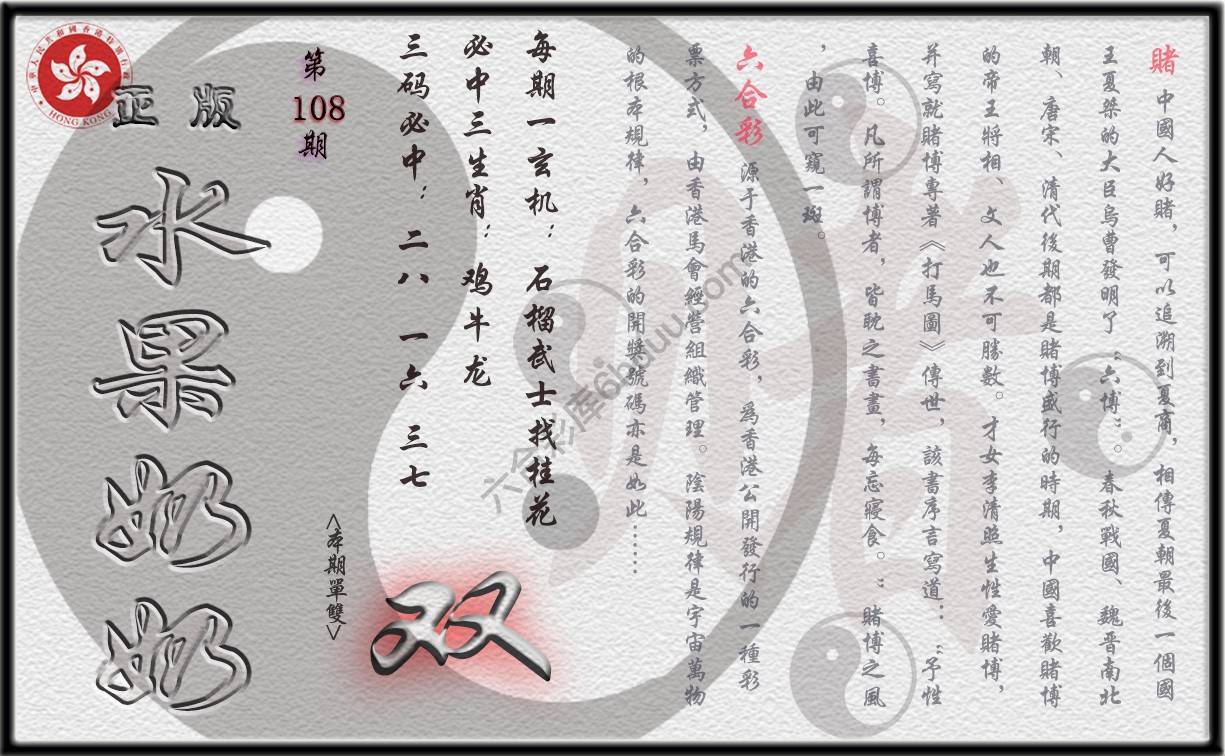 賭 中國人好賭，可以追溯到夏商，相傳夏朝最後一個國
王夏桀的大臣烏曹發明了“六博”。春秋戰國、魏晋南北
朝、唐宋、清代後期都是賭博盛行的時期，中國喜歡賭博
的帝王將相、文人也不可勝數。才女李清照生性愛賭博，
并寫就賭博專著《打馬圖》傳世，該書序言寫道：“予性
喜博。凡所謂博者，皆耽之書畫，每忘寢食。”賭博之風
，由此可窺一斑。
六合彩 源于香港的六合彩，爲香港公開發行的一種彩
票方式，由香港馬會經營組織管理。陰陽規律是宇宙萬物
的根本規律，六合彩的開獎號碼亦是如此……
每期一玄机：石榴武士找桂花
必中三生肖：鸡牛龙
三码必中：二八 一六 三七
双
<本期單雙>
第
108
期
正版
水果奶奶
中華人民共和國香港特別行政區
HONG KONG
六合彩库6hduu.com